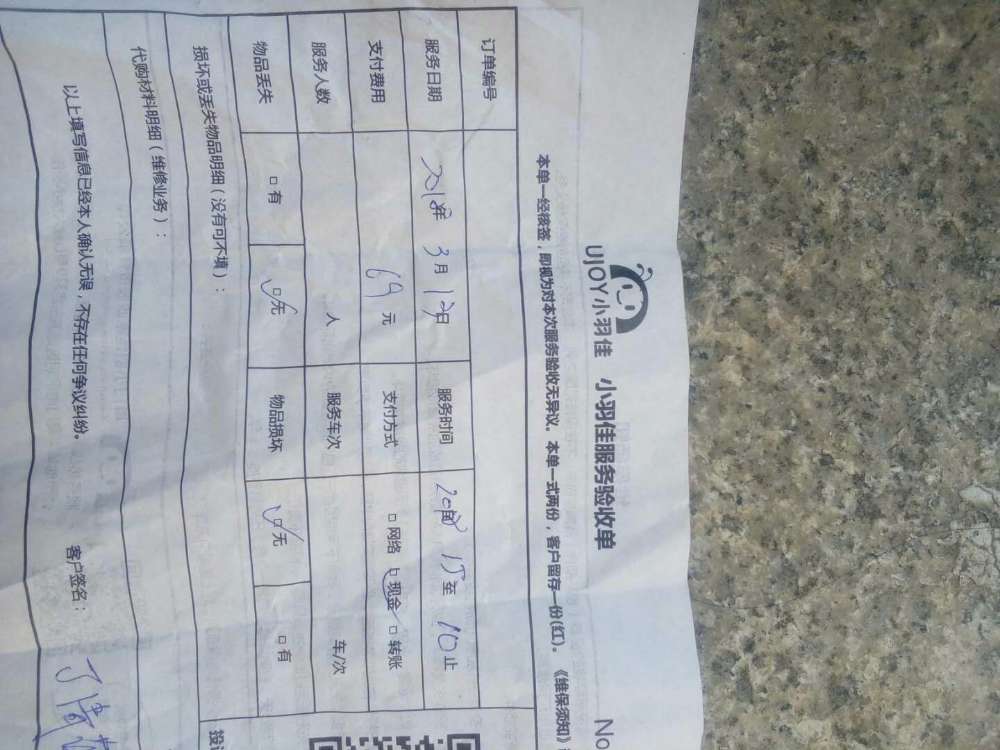 UJOY小羽佳 小羽佳服务验收单
No
本单一经核签，即视为对本次服务验收无异议。本单一式两份，客户留存一份(红)。《维保须知》
订单编号
服务日期 2018年 3月 12日 服务时间 至 10止
支付费用 69 元 支付方式 □网络 □现金 □转账
服务人数 人 服务车次 车/次
物品丢失 □有 □无 物品损坏 □无 □有
损坏或丢失物品明细（没有可不填）：
代购材料明细（维修业务）：
以上填写信息已经本人确认无误，不存在任何争议纠纷。 客户签名：